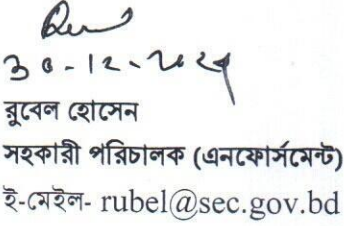 ৩০-১২-২০২৪
রুবেল হোসেন
সহকারী পরিচালক (এনফোর্সমেন্ট)
ই-মেইল- rubel@sec.gov.bd